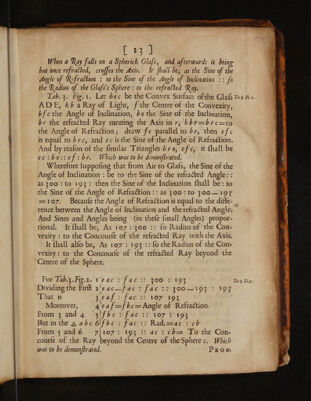 [ 13 ]
When a Ray falls on a Spherick Glass, and afterwards it being
but once refracted, crosses the Axis. It shall be, as the Sine of the
Angle of Refraction : to the Sine of the Angle of Inclination : : so
the Radius of the Glass's Sphere : to the refracted Ray.
Tab. 3. Fig. 1. Let b e c be the Convex Surface of the Glass
A D E, k b a Ray of Light, f the Centre of the Convexity,
b f e the Angle of Inclination, b o the Sine of the Inclination,
b r the refracted Ray meeting the Axis in r,
the Angle of Refraction; draw f e parallel to b r, then e f c
is equal to b r c, and e c is the Sine of the Angle of Refraction.
And by reason of the similar Triangles b r o, e f c, it shall be
e c : b o : : e f : b r. Which was to be demonstrated.
Wherefore supposing that from Air to Glass, the Sine of the
Angle of Inclination : be to the Sine of the refracted Angle : :
as 300 : to 193 : then the Sine of the Inclination shall be : to
the Sine of the Angle of Refraction : : as 300 : to 300 — 193
= 107. Because the Angle of Refraction is equal to the diffe-
rence between the Angle of Inclination and the refracted Angle.
And Sines and Angles being (in these small Angles) propor-
tional. It shall be, As 107 : 300 : : so Radius of the Con-
vexity : to the Concourse of the refracted Ray with the Axis.
It shall also be, As 107 : 193 : : so the Radius of the Con-
vexity : to the Concourse of the refracted Ray beyond the
Centre of the Sphere.
For Tab. 3. Fig. 2. 1 e a c : f a c : : 300 : 193
Dividing the First 2 e a c — f a c : f a c : : 300 — 193 : 193
That is 3 c a f : f a c : : 107 193
Moreover, 4 c a f = f b c = Angle of Refraction.
From 3 and 4 5 f b c : f a c : : 107 : 193
But in the △ a b c 6 f b c : f a c : : Rad. = a c : c b
From 5 and 6 7 107 : 193 : : a c : c b = To the Con-
course of the Ray beyond the Centre of the Sphere c. Which
was to be demonstrated. PROB.